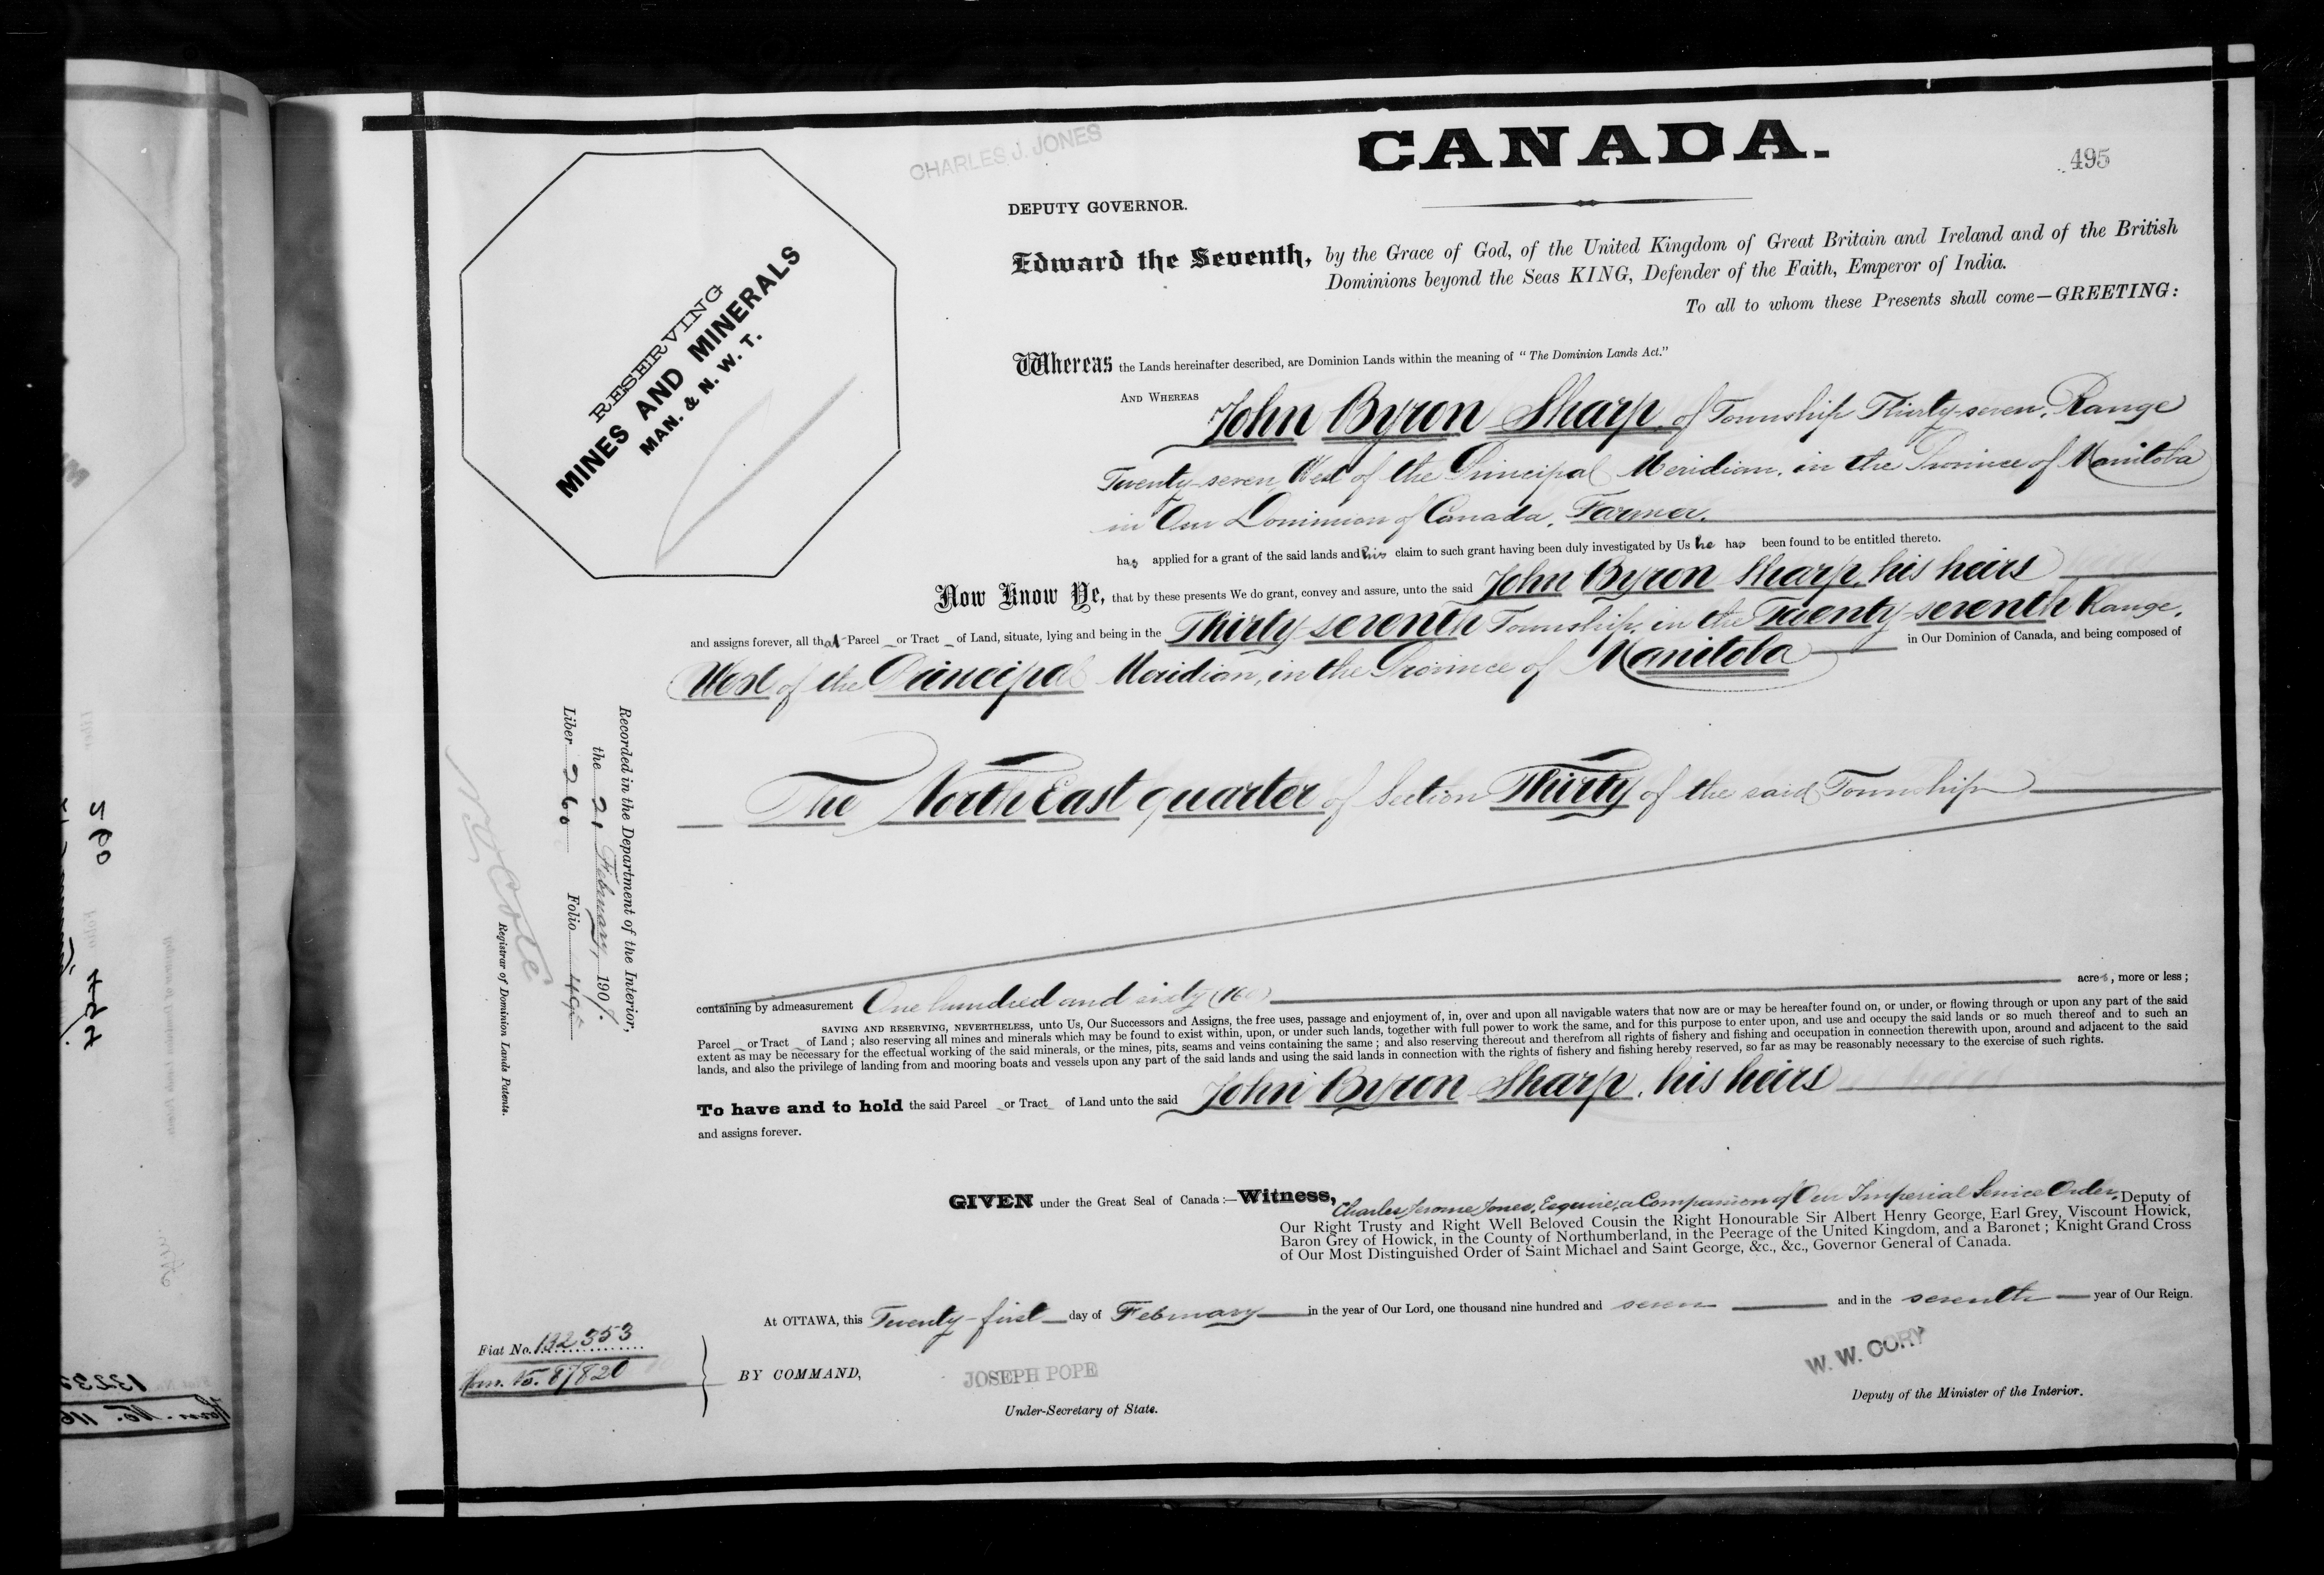 CHARLES J. JONES
CANADA.
495
DEPUTY GOVERNOR.
RESERVING
MINES AND MINERALS
MAN. & N. W. T.
Edward the Seventh, by the Grace of God, of the United Kingdom of Great Britain and Ireland and of the British
Dominions beyond the Seas KING, Defender of the Faith, Emperor of India.
To all to whom these Presents shall come—GREETING:
Whereas the Lands hereinafter described, are Dominion Lands within the meaning of "The Dominion Lands Act."
AND WHEREAS John Byron Sharp, of Township Thirty-seven, Range
Twenty-seven, West of the Principal Meridian, in the Province of Manitoba
in Our Dominion of Canada, Farmer.
has applied for a grant of the said lands and his claim to such grant having been duly investigated by Us he has been found to be entitled thereto.
Now Know Ye, that by these presents We do grant, convey and assure, unto the said John Byron Sharp, his heirs
and assigns forever, all that Parcel or Tract of Land, situate, lying and being in the Thirty-seventh Township, in the Twenty-seventh Range,
West of the Principal Meridian, in the Province of Manitoba in Our Dominion of Canada, and being composed of
The North East quarter of Section Thirty of the said Township
containing by admeasurement One hundred and sixty (160) acres, more or less;
SAVING AND RESERVING, NEVERTHELESS, unto Us, Our Successors and Assigns, the free uses, passage and enjoyment of, in, over and upon all navigable waters that now are or may be hereafter found on, or under, or flowing through or upon any part of the said
Parcel or Tract of Land; also reserving all mines and minerals which may be found to exist within, upon, or under such lands, together with full power to work the same, and for this purpose to enter upon, and use and occupy the said lands or so much thereof and to such an
extent as may be necessary for the effectual working of the said minerals, or the mines, pits, seams and veins containing the same; and also reserving thereout and therefrom all rights of fishery and fishing and occupation in connection therewith upon, around and adjacent to the said
lands, and also the privilege of landing from and mooring boats and vessels upon any part of the said lands and using the said lands in connection with the rights of fishery and fishing hereby reserved, so far as may be reasonably necessary to the exercise of such rights.
To have and to hold the said Parcel or Tract of Land unto the said John Byron Sharp, his heirs
and assigns forever.
GIVEN under the Great Seal of Canada:—Witness, Charles Jerome Jones, Esquire, a Companion of Our Imperial Service Order, Deputy of
Our Right Trusty and Right Well Beloved Cousin the Right Honourable Sir Albert Henry George, Earl Grey, Viscount Howick,
Baron Grey of Howick, in the County of Northumberland, in the Peerage of the United Kingdom, and a Baronet; Knight Grand Cross
of Our Most Distinguished Order of Saint Michael and Saint George, &c., &c., Governor General of Canada.
At OTTAWA, this Twenty-first day of February in the year of Our Lord, one thousand nine hundred and seven and in the seventh year of Our Reign.
Fiat No. 132353
Hom. No. 87820
BY COMMAND,
JOSEPH POPE
Under-Secretary of State.
W. W. CORY
Deputy of the Minister of the Interior.
Recorded in the Department of the Interior,
the 21 February, 1907.
Liber 260 Folio 495
N O Coté
Registrar of Dominion Lands Patents.